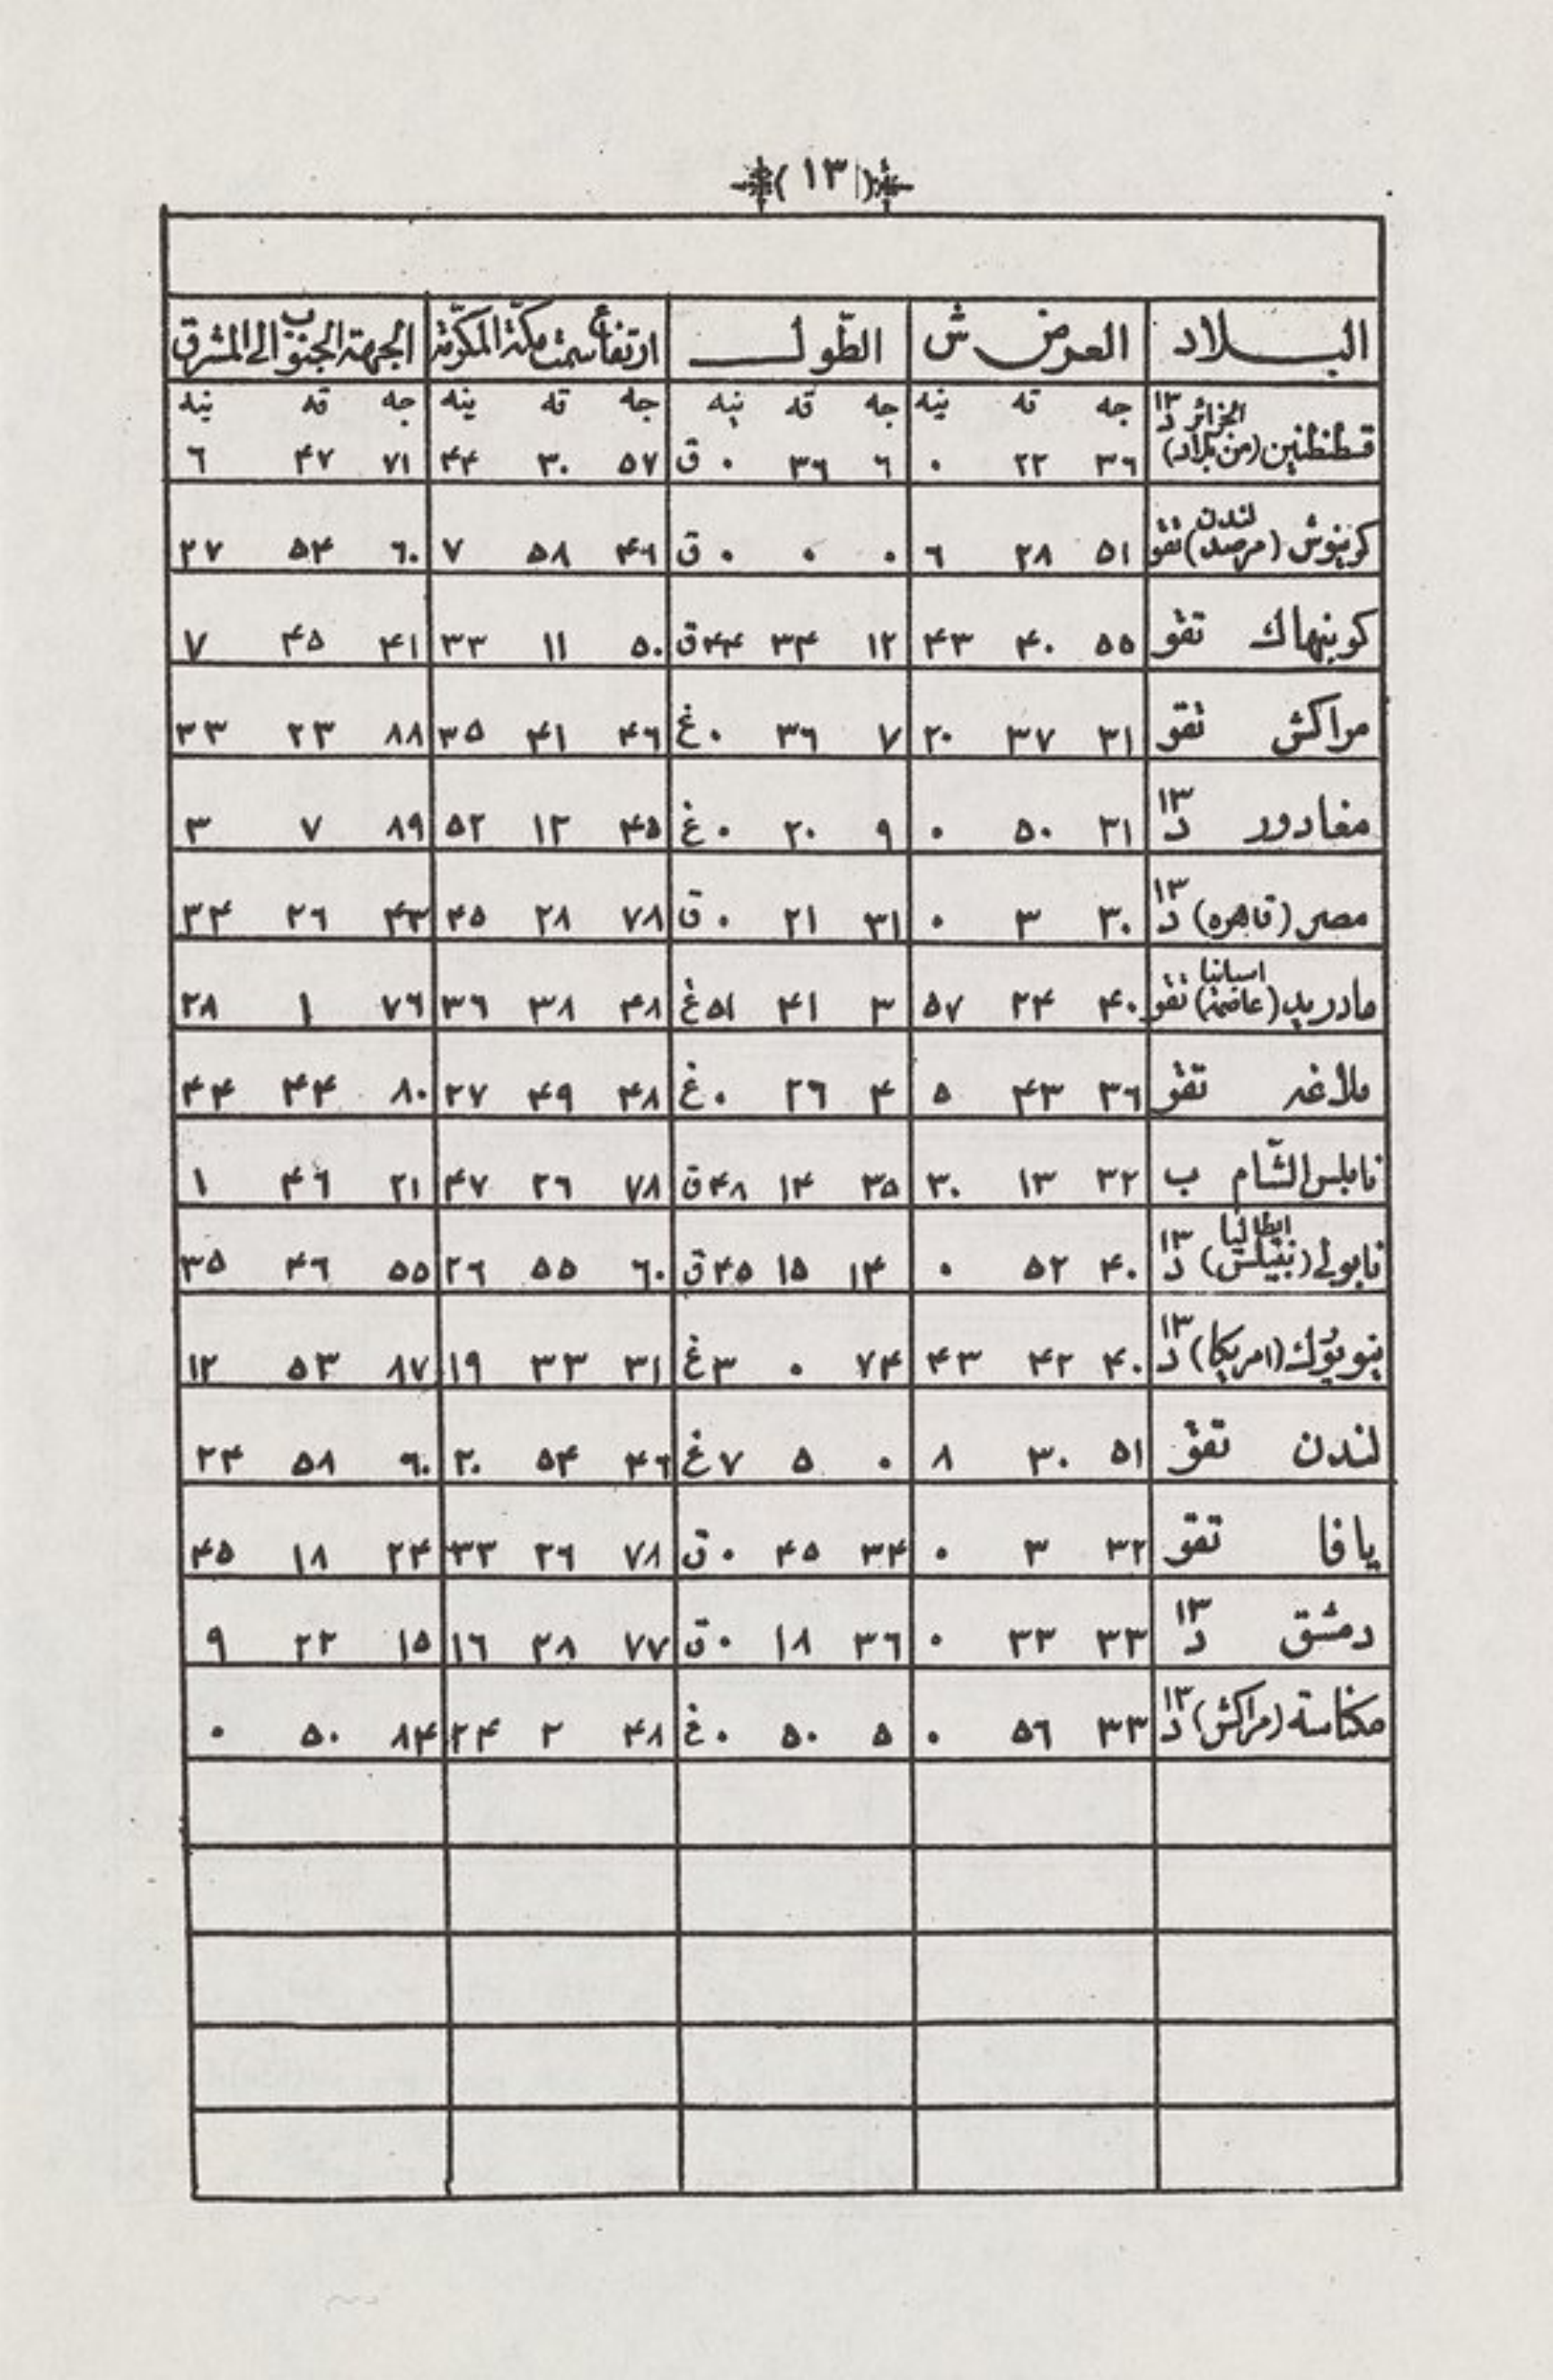 (١٣)
البلاد العرض ش الطّول ارتفاع سمت مكّة المكرّمة الجهة الجنوب الى المشرق
جه قه نيه جه قه نيه جه قه نيه جه قه نيه
قسطنطنين (من بلاد الجزائر) د ١٣ ٣٦ ٢٢ ٠ ٦ ٣٦ ٠ ق ٥٧ ٣٠ ۴۴ ٧١ ۴٧ ٦
كرينوش (مرصد لندن) تقو ٥١ ٢٨ ٦ ٠ ٠ ٠ ق ۴٦ ٥٨ ٧ ٦٠ ٥۴ ٢٧
كوبنهاك تقو ٥٥ ۴٠ ۴٣ ١٢ ٣۴ ۴۴ ق ٥٠ ١١ ٣٣ ۴١ ۴٥ ٧
مراكش تقو ٣١ ٣٧ ٢٠ ٧ ٣٦ ٠ غ ۴٦ ۴١ ٣٥ ٨٨ ٢٣ ٣٣
مغادور د ١٣ ٣١ ٥٠ ٠ ٩ ٢٠ ٠ غ ۴٥ ١٢ ٥٢ ٨٩ ٧ ٣
مصر (قاهره) د ١٣ ٣٠ ٣ ٠ ٣١ ٢١ ٠ ق ٧٨ ٢٨ ۴٥ ۴٣ ٢٦ ٣۴
مادريد (عاصمة اسبانيا) تقو ۴٠ ٢۴ ٥٧ ٣ ۴١ ٥١ غ ۴٨ ٣٨ ٣٦ ٧٦ ١ ٢٨
ملاغه تقو ٣٦ ۴٣ ٥ ۴ ٢٦ ٠ غ ۴٨ ۴٩ ٢٧ ٨٠ ۴۴ ۴۴
نابلس الشّام ب ٣٢ ١٣ ٣٠ ٣٥ ١۴ ۴٨ ق ٧٨ ٢٦ ۴٧ ٢١ ۴٦ ١
نابولى (نپيلس ايطاليا) د ١٣ ۴٠ ٥٢ ٠ ١۴ ١٥ ۴٥ ق ٦٠ ٥٥ ٢٦ ٥٥ ۴٦ ٣٥
نيويورك (امريكا) د ١٣ ۴٠ ۴٢ ۴٣ ٧۴ ٠ ٣ غ ٣١ ٣٣ ١٩ ٨٧ ٥٣ ١٢
لندن تقو ٥١ ٣٠ ٨ ٠ ٥ ٧ غ ۴٦ ٥۴ ٢٠ ٦٠ ٥٨ ٢۴
يافا تقو ٣٢ ٣ ٠ ٣۴ ۴٥ ٠ ق ٧٨ ٢٦ ٣٣ ٢۴ ١٨ ۴٥
دمشق د ١٣ ٣٣ ٣٣ ٠ ٣٦ ١٨ ٠ ق ٧٧ ٢٨ ١٦ ١٥ ٢٢ ٩
مكناسة (مراكش) د ١٣ ٣٣ ٥٦ ٠ ٥ ٥٠ ٠ غ ۴٨ ٢ ٢۴ ٨۴ ٥٠ ٠